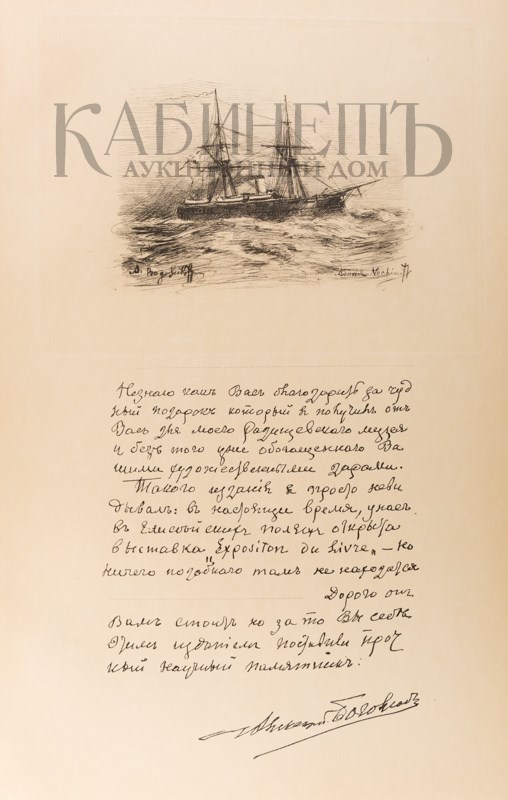 КАБИНЕТЪ
АУКЦИОННЫЙ ДОМ
Незнаю какъ Васъ благодарить за чуд
ный подарокъ который я получилъ отъ
Васъ для моего Радищевского музея
и безъ того уже обогащенного Ва
шими художественными дарами.
Такого издания я просто неви
дывалъ: въ настоящее время, у насъ
въ Елисейскихъ поляхъ открыта
выставка "Expositon du Livre" – но
ничего подобного тамъ не находится
Дорого онъ
Вамъ стоитъ но за то Вы себѣ
этимъ изданіемъ поставили проч
ный научный памятникъ:
Алексѣй Боголюбовъ